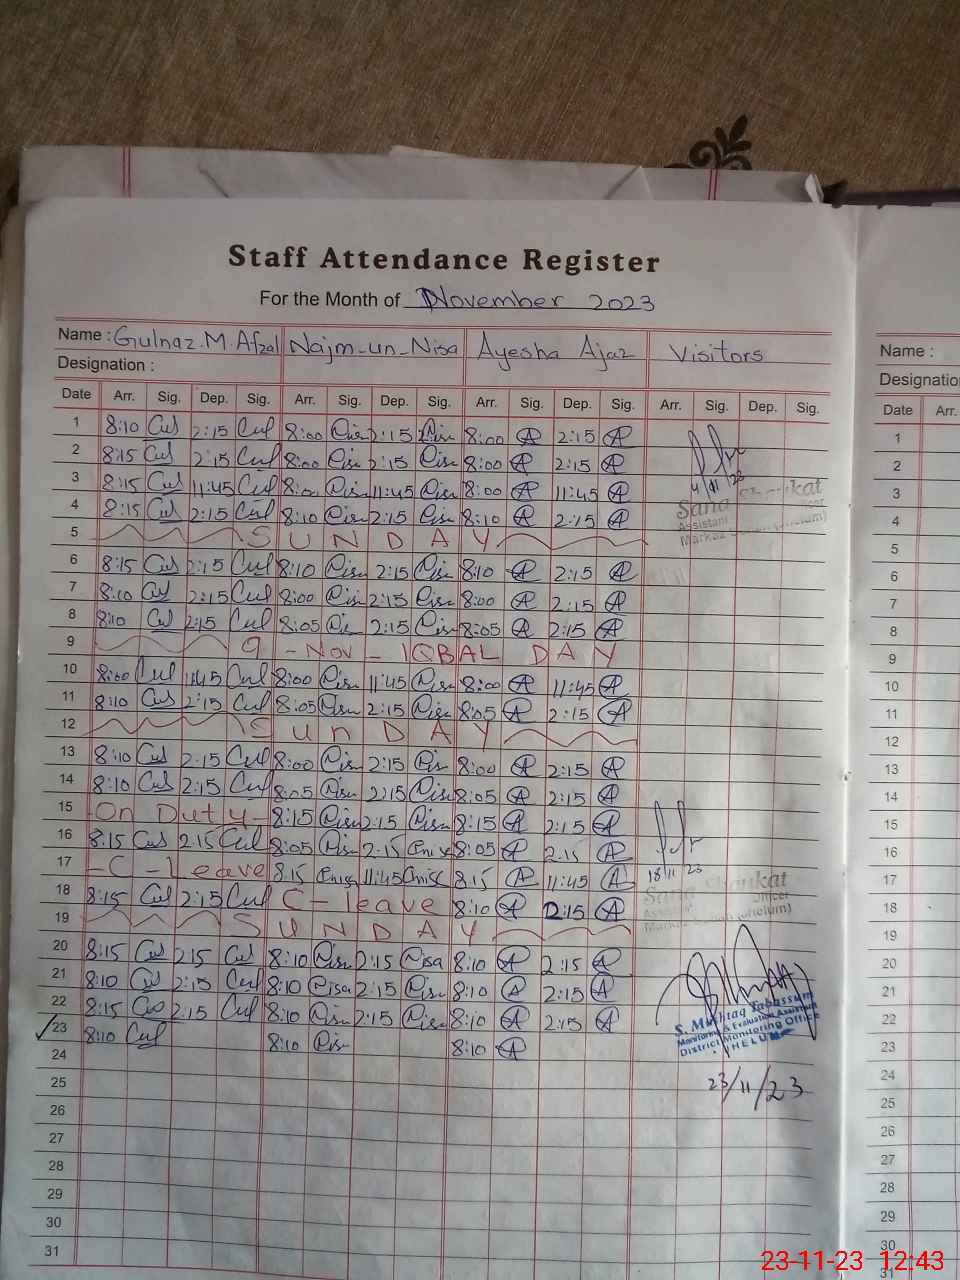 Staff Attendance Register
For the Month of November 2023
Name : Gulnaz. M. Afzal Najm-un-Nisa Ayesha Ajaz Visitors
Designation :
Date Arr. Sig. Dep. Sig. Arr. Sig. Dep. Sig. Arr. Sig. Dep. Sig. Arr. Sig. Dep. Sig.
1 8:10 2:15 8:00 2:15 8:00 2:15
2 8:15 2:15 8:00 2:15 8:00 2:15
3 8:15 11:45 8:00 11:45 8:00 11:45
4 8:15 2:15 8:10 2:15 8:10 2:15
4/11/23
Sana Shaukat
Assistant
5 SUNDAY
6 8:15 2:15 8:10 2:15 8:10 2:15
7 8:10 2:15 8:00 2:15 8:00 2:15
8 8:10 2:15 8:05 2:15 8:05 2:15
9 9 - Nov - IQBAL DAY
10 8:00 11:45 8:00 11:45 8:00 11:45
11 8:10 2:15 8:05 2:15 8:05 2:15
12 SunDAY
13 8:10 2:15 8:00 2:15 8:00 2:15
14 8:10 2:15 8:05 2:15 8:05 2:15
15 On Duty - 8:15 2:15 8:15 2:15
16 8:15 2:15 8:05 2:15 8:05 2:15
17 - C - Leave 8:15 11:45 8:15 11:45
18 8:15 2:15 C - leave 8:10 2:15
18/11/23
Sana Shaukat
Officer
19 SUNDAY
20 8:15 2:15 8:10 2:15 8:10 2:15
21 8:10 2:15 8:10 2:15 8:10 2:15
22 8:15 2:15 8:10 2:15 8:10 2:15
23 8:10 8:10 8:10
S. Mushtaq Tabassum
Monitoring & Evaluation Assistant
District Monitoring Office
JHELUM
23/11/23
24
25
26
27
28
29
30
31
Name :
Designatio
Date Arr.
1
2
3
4
5
6
7
8
9
10
11
12
13
14
15
16
17
18
19
20
21
22
23
24
25
26
27
28
29
30
31
23-11-23 12:43